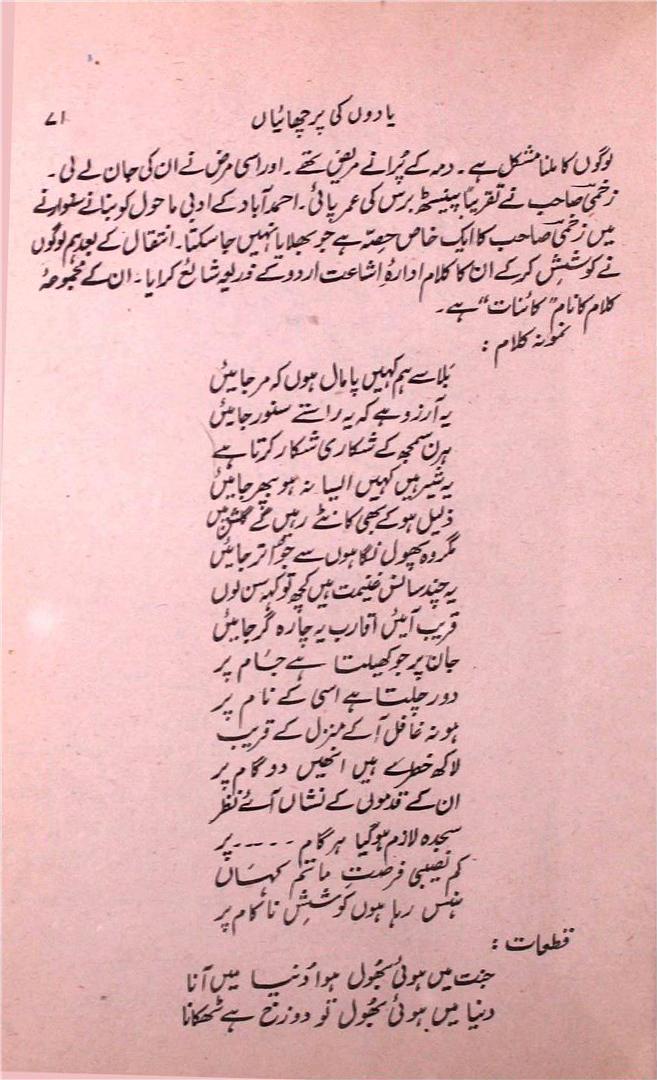 یادوں کی پرچھائیاں ۷۱
لوگوں کا ملنا مشکل ہے۔ دمہ کے پُرانے مریض تھے۔ اور اسی مرض نے ان کی جان لے لی۔
زخمی صاحب نے تقریباً پینسٹھ برس کی عمر پائی۔ احمد آباد کے ادبی ماحول کو بنانے سنوارنے
میں زخمی صاحب کا ایک خاص حصّہ ہے جو بھلایا نہیں جا سکتا۔ انتقال کے بعد ہم لوگوں
نے کوشش کرکے ان کا کلام ادارہُ اشاعت اردو کے ذریعہ شائع کرایا۔ ان کے مجموعۂ
کلام کا نام "کائنات" ہے۔
نمونہ کلام :
بَلا سے ہم کہیں پامال ہوں کہ مر جائیں
یہ آرزو ہے کہ یہ راستے سنور جائیں
ہرن سمجھ کے شکاری شکار کرتا ہے
یہ شیر ہیں کہیں ایسا نہ ہو بپھر جائیں
ذلیل ہو کے بھی کانٹے رہیں گے گلشن میں
مگر وہ پھول نگاہوں سے جو اتر جائیں
یہ چند سانس غنیمت ہیں کچھ تو کہہ سن لوں
قریب آئیں اقارب یہ چارہ گر جائیں
جان پر جو کھیلتا ہے جام پر
دور چلتا ہے اسی کے نام پر
ہو نہ غافل آ کے منزل کے قریب
لاکھ خطرے ہیں انھیں دو گام پر
ان کے قدموں کے نشاں آئے نظر
سجدہ لازم ہو گیا ہر گام ۔۔۔۔۔ پر
کم نصیبی فرصتِ ماتم کہاں
ہنس رہا ہوں کوششِ ناکام پر
قطعات :
جنت میں ہوئی بھُول ہوا دُنیا میں آنا
دنیا میں ہوئی بھُول تو دوزخ ہے ٹھکانا